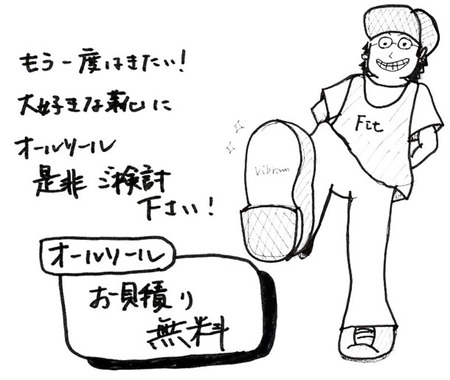 もう一度はきたい!
大好きな靴に
オールソール
是非ご検討
下さい!
オールソール
お見積り
無料
Fit
Vibram